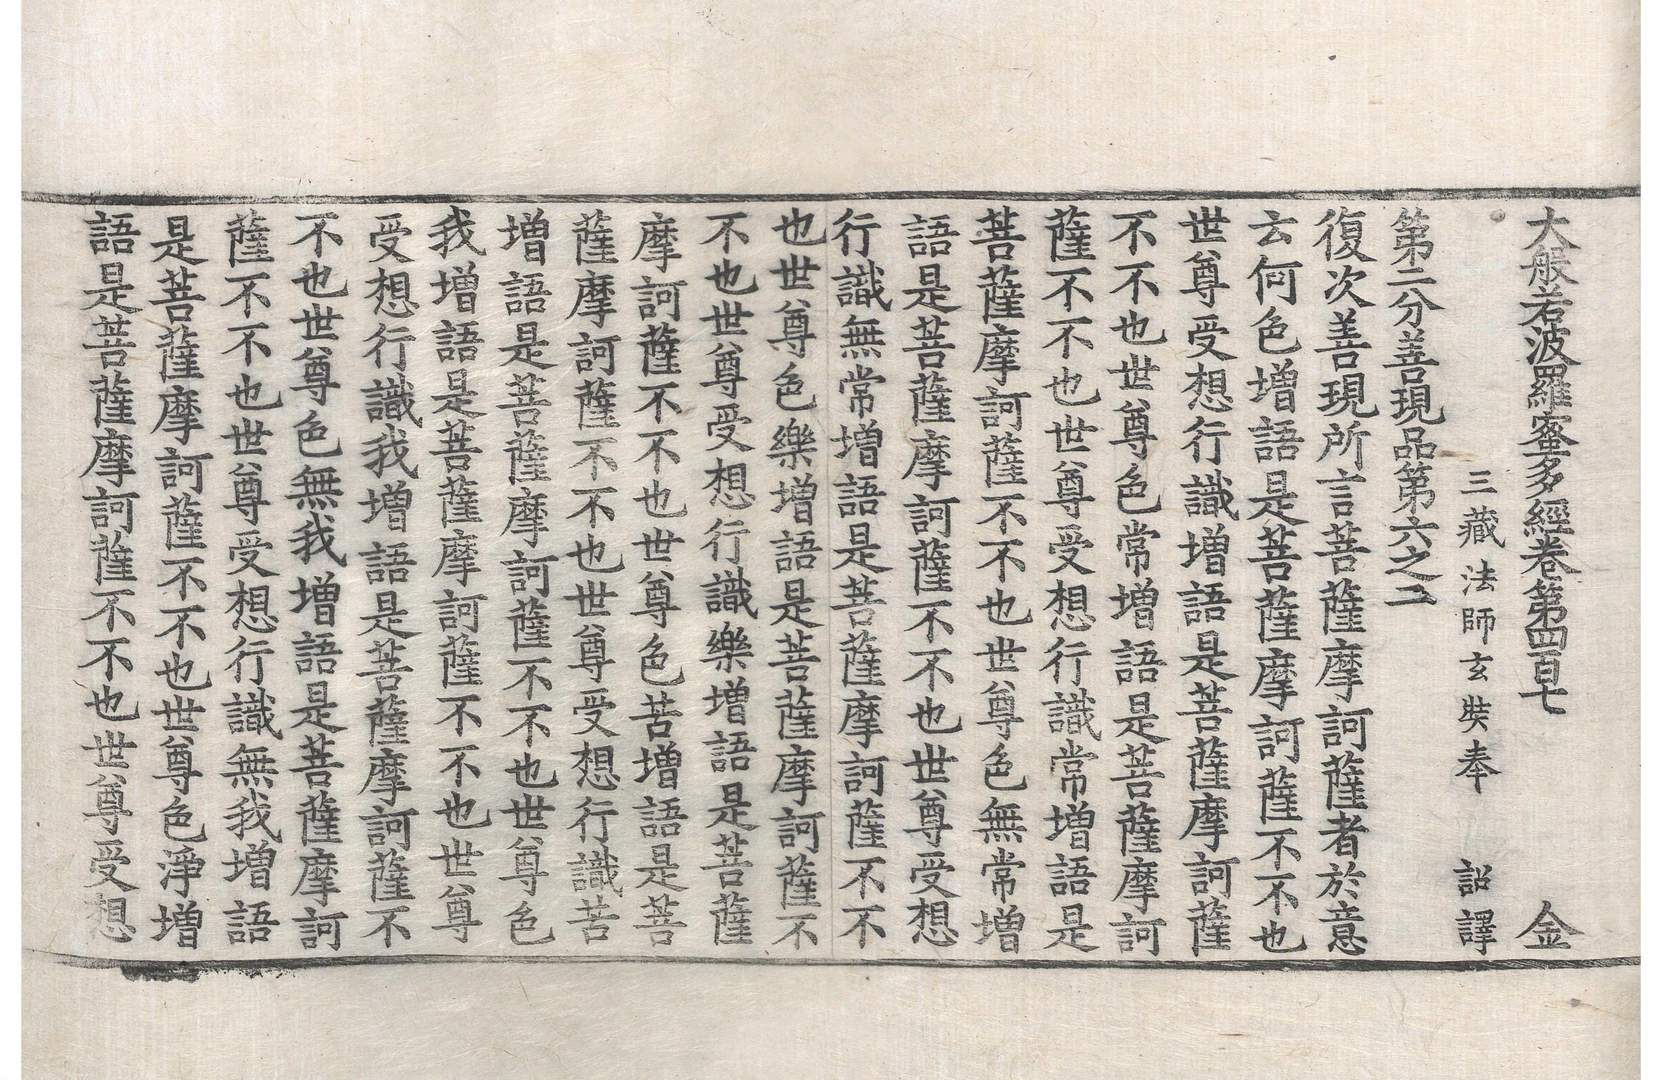 大般若波羅蜜多經卷第四百七 金
三藏法師玄奘奉 詔譯
第二分善現品第六之二
復次善現所言菩薩摩訶薩者於意
云何色增語是菩薩摩訶薩不不也
世尊受想行識增語是菩薩摩訶薩
不不也世尊色常增語是菩薩摩訶
薩不不也世尊受想行識常增語是
菩薩摩訶薩不不也世尊色無常增
語是菩薩摩訶薩不不也世尊受想
行識無常增語是菩薩摩訶薩不不
也世尊色樂增語是菩薩摩訶薩不
不也世尊受想行識樂增語是菩薩
摩訶薩不不也世尊色苦增語是菩
薩摩訶薩不不也世尊受想行識苦
增語是菩薩摩訶薩不不也世尊色
我增語是菩薩摩訶薩不不也世尊
受想行識我增語是菩薩摩訶薩不
不也世尊色無我增語是菩薩摩訶
薩不不也世尊受想行識無我增語
是菩薩摩訶薩不不也世尊色淨增
語是菩薩摩訶薩不不也世尊受想